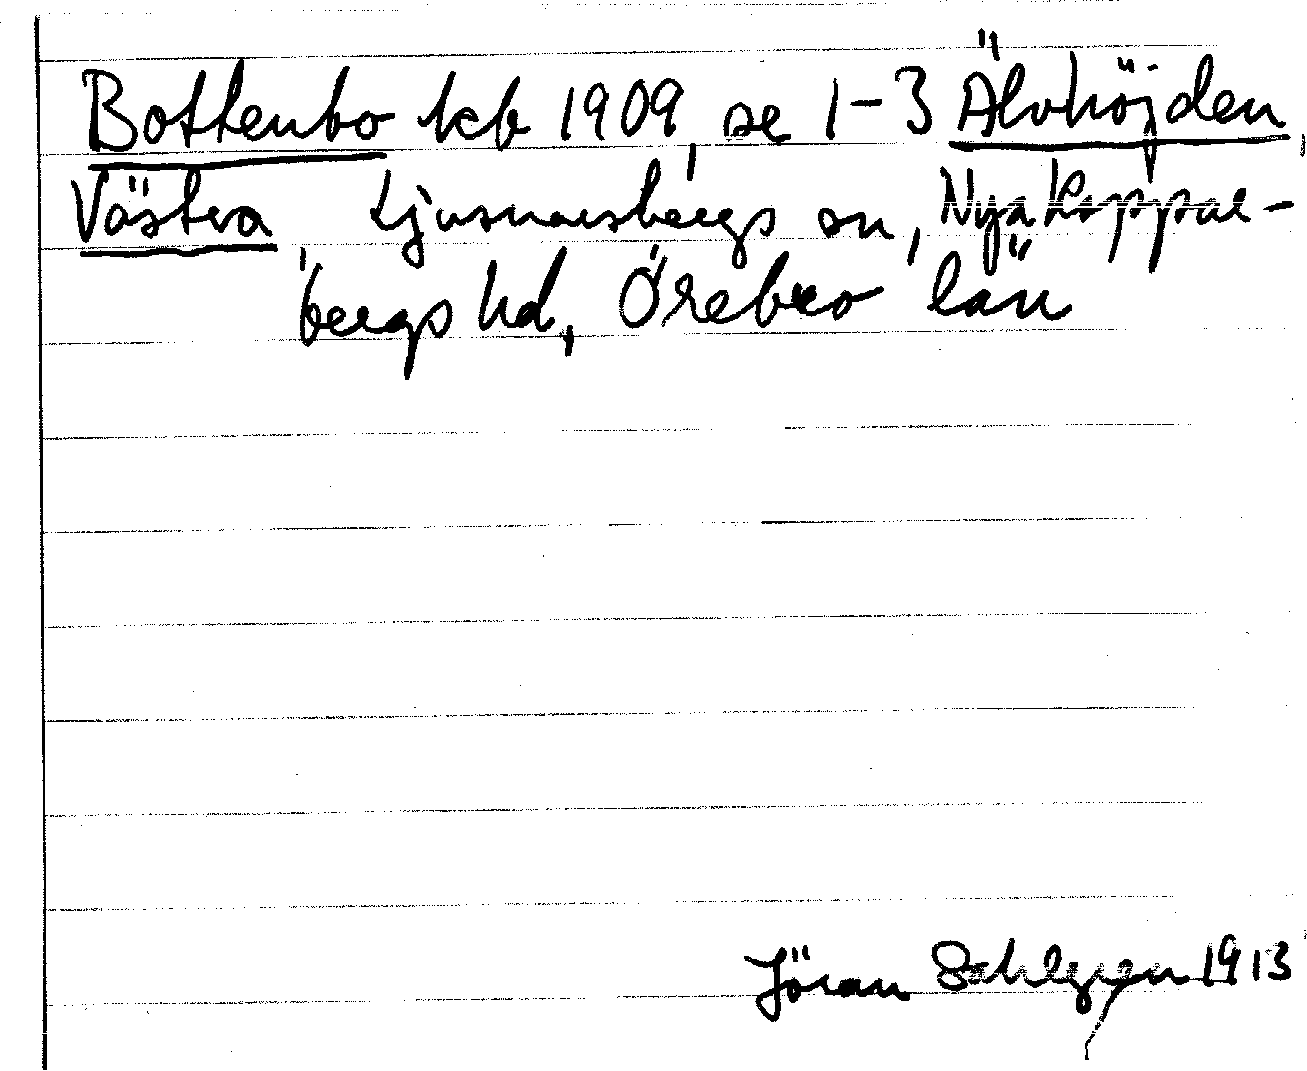 Bottenbo kb 1909, se 1-3 Älvhöjden,
Västra Ljusnarsbergs sn, Nya Koppar-
bergs hd, Örebro län
Jöran Sahlgren 1913